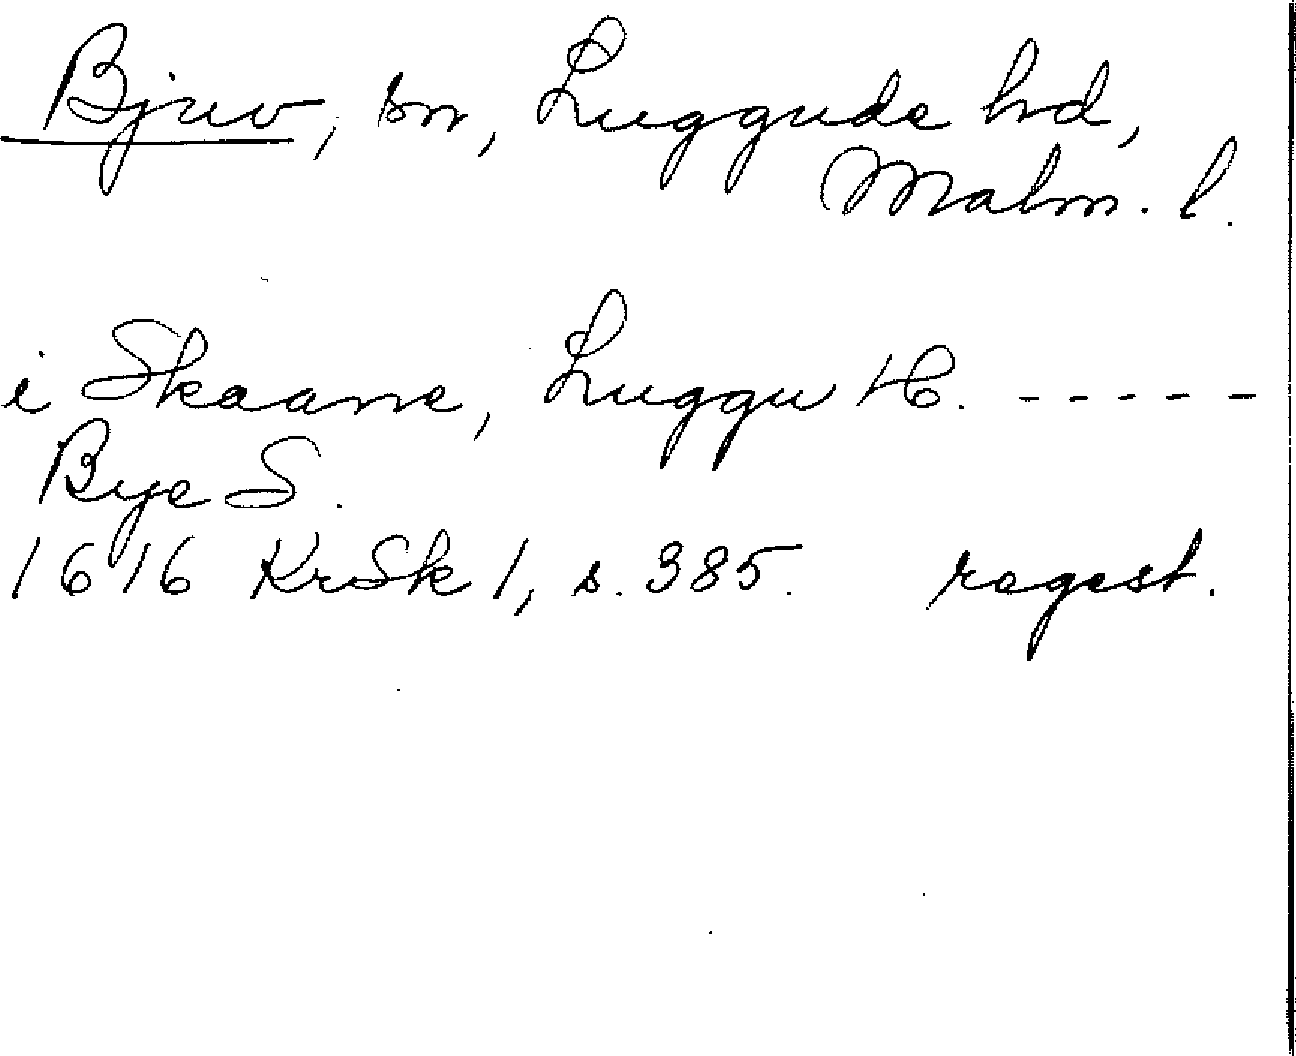 Bjuv, sn, Luggude hd,
Malm. l.
i Skaane, Luggu H. -----
Bye S.
1616 KrSk 1, s. 385. regest.